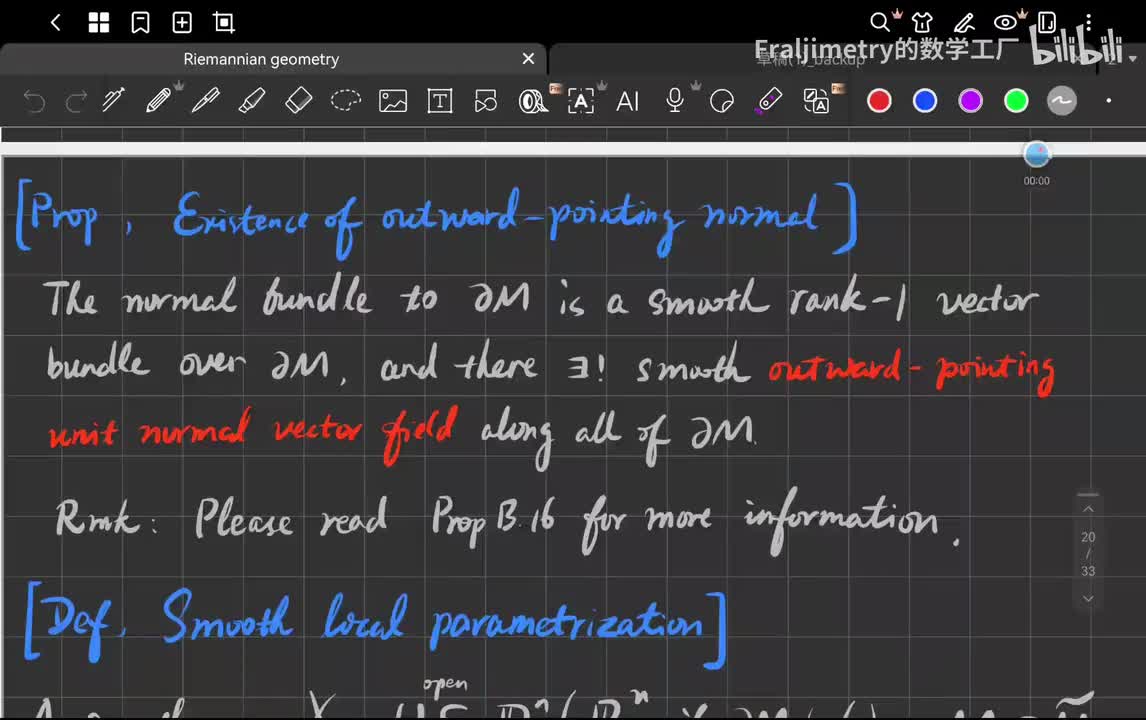 Fraljimetry的数学工厂 bilibili
Riemannian geometry
_backup
00:00
[Prop, Existence of outward-pointing normal]
The normal bundle to ∂M is a smooth rank-1 vector
bundle over ∂M, and there ∃! smooth outward-pointing
unit normal vector field along all of ∂M.
Rmk: Please read Prop B.16 for more information.
20
/
33
[Def, Smooth local parametrization]
open